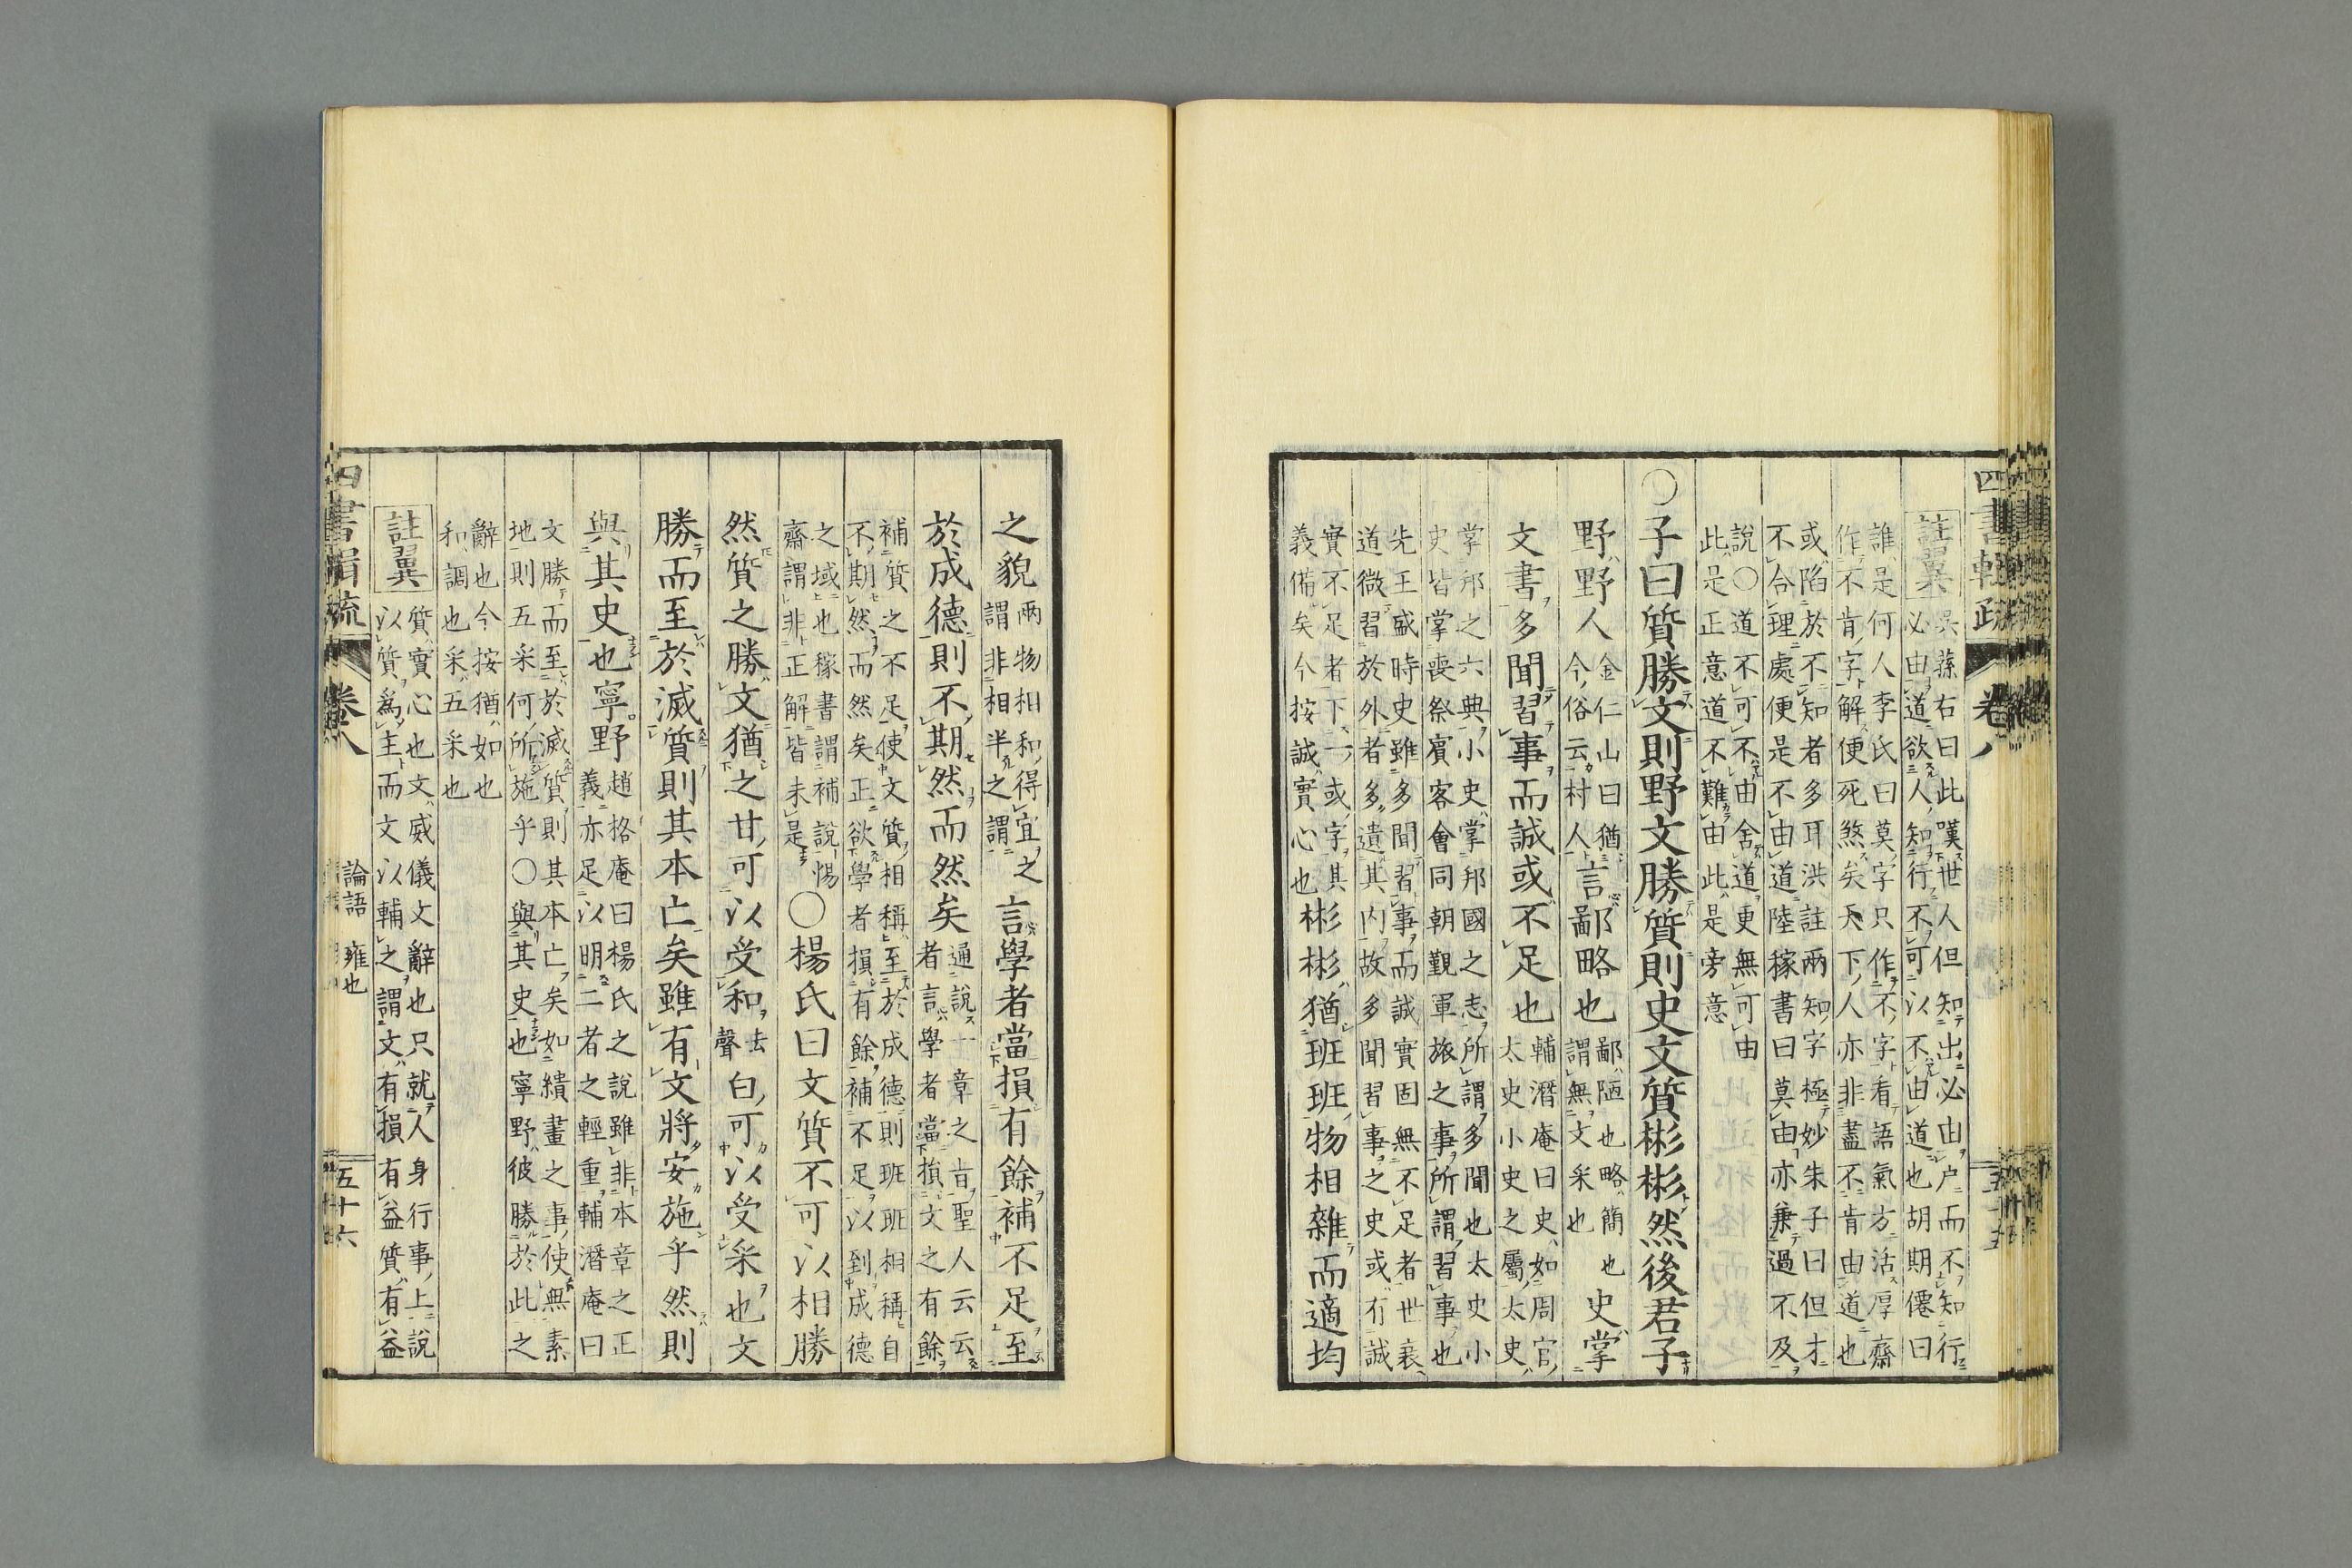 四書輯疏 卷八
註翼 吳蓀右曰此嘆世人但知出必由户而不知行
必由道欲人知行不可以不由道也胡期僊曰
誰是何人李氏曰莫字只作不字看語氣方活厚齋
作不肯字解便死煞矣天下人亦非盡不肯由道也
或陷於不知者多耳洪註兩知字極妙朱子曰但才
不合理處便是不由道陸稼書曰莫由亦兼過不及
說○道不可不由舍道更無可由
此是正意道不難由此是旁意
○子曰質勝文則野文勝質則史文質彬彬然後君子
野野人
金仁山曰猶
今俗云村人
言鄙略也
鄙陋也略簡也
謂無文采也
史掌
文書多聞習事而誠或不足也
輔潛庵曰史如周官
太史小史之屬太史
掌邦之六典小史掌邦國之志所謂多聞也太史小
史皆掌喪祭賓客會同朝覲軍旅之事所謂習事也
先王盛時史雖多聞習事而誠實固無不足者世衰
道微習於外者多遺其內故多聞習事之史或有誠
實不足者下一或字其
義備矣今按誠實心也
彬彬猶班班物相雜而適均
之貌
兩物相和得宜之
謂非相半之謂
言學者當損有餘補不足至
於成德則不期然而然矣
通說一章之旨聖人云云
者言學者當損文之有餘
補質之不足使文質相稱至於成德則班班相稱自
不期然而然矣正欲學者損有餘補不足以到成德
之域也稼書謂補說惕
齋謂非正解皆未是
○楊氏曰文質不可以相勝
然質之勝文猶之甘可以受和
去
聲
白可以受采也文
勝而至於滅質則其本亡矣雖有文將安施乎然則
與其史也寧野
趙格庵曰楊氏之說雖非本章之正
義亦足以明二者之輕重輔潛庵曰
文勝而至於滅質則其本亡矣如繢畫之事使無素
地則五采何所施乎○與其史也寧野彼勝於此之
辭也今按猶如也
和調也采五采也
註翼 質實心也文威儀文辭也只就人身行事上說
以質為主而文以輔之謂文有損有益質有益
四書輯疏 卷八 論語 雍也 五十六